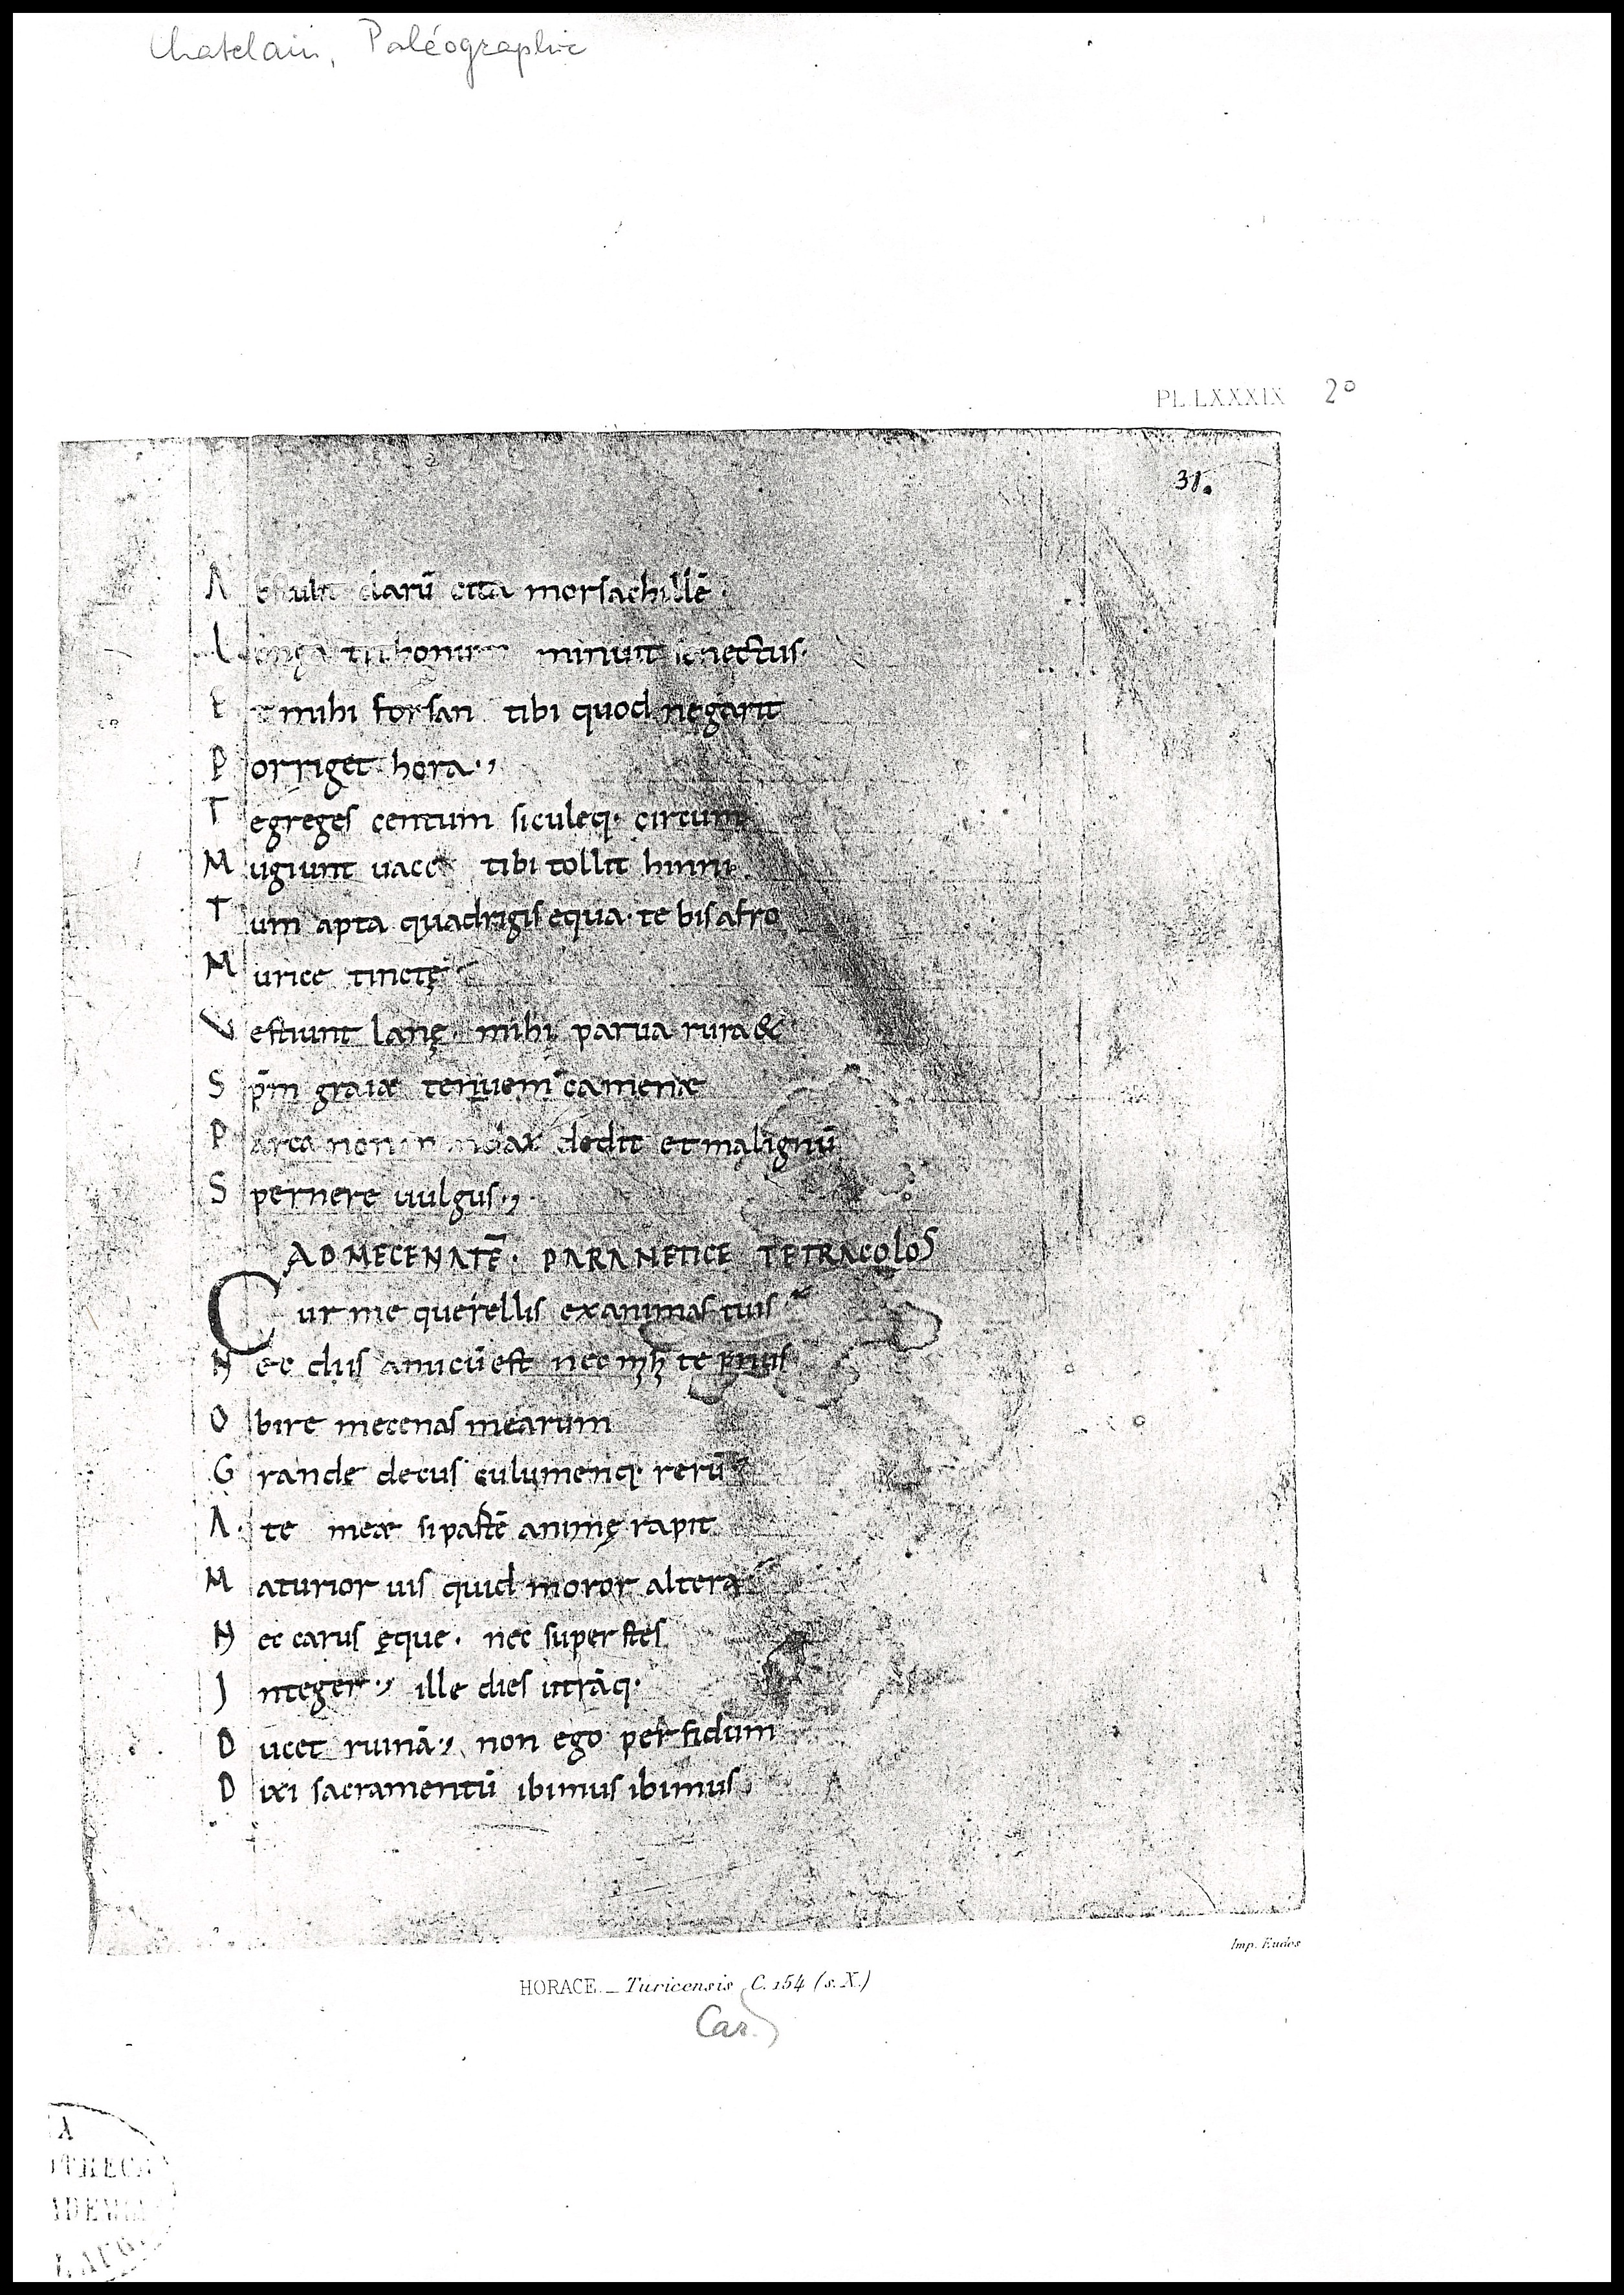 Chatelain, Paléographie
PL. LXXXIX 2º
31.
A bstulit clarū cita morsachillē·
L onga tithonum minuit senectus·
E t mihi forsan tibi quod negarit
P orriget hora·,
T egreges centum siculeq· circum
M ugiunt uacce tibi tollit hinni
T um apta quadrigis equa· te bis afro
M urice tinctę
V estiunt lanę· mihi parua rura &
S pm̄ graiæ tenuem camenæ
P arca non dedit et malignū
S pernere uulgus·,
AD MECENATĒ· PARANETICE TETRACOLOS
C ur me querellis exanimas tuis
N ec diis amicū est nec mh̄ te prius
O bire mecenas mearum
G rande decus culumenq· rerū
A· te meæ si partē animę rapit
M aturior uis quid moror altera
N ec carus ęque· nec superstes
J nteger·, ille dies utrāq·
D ucet ruinā·, non ego perfidum
D ixi sacramentū ibimus ibimus
Imp. Eudes
HORACE. _ Turicensis C. 154 (s. X.)
Car.